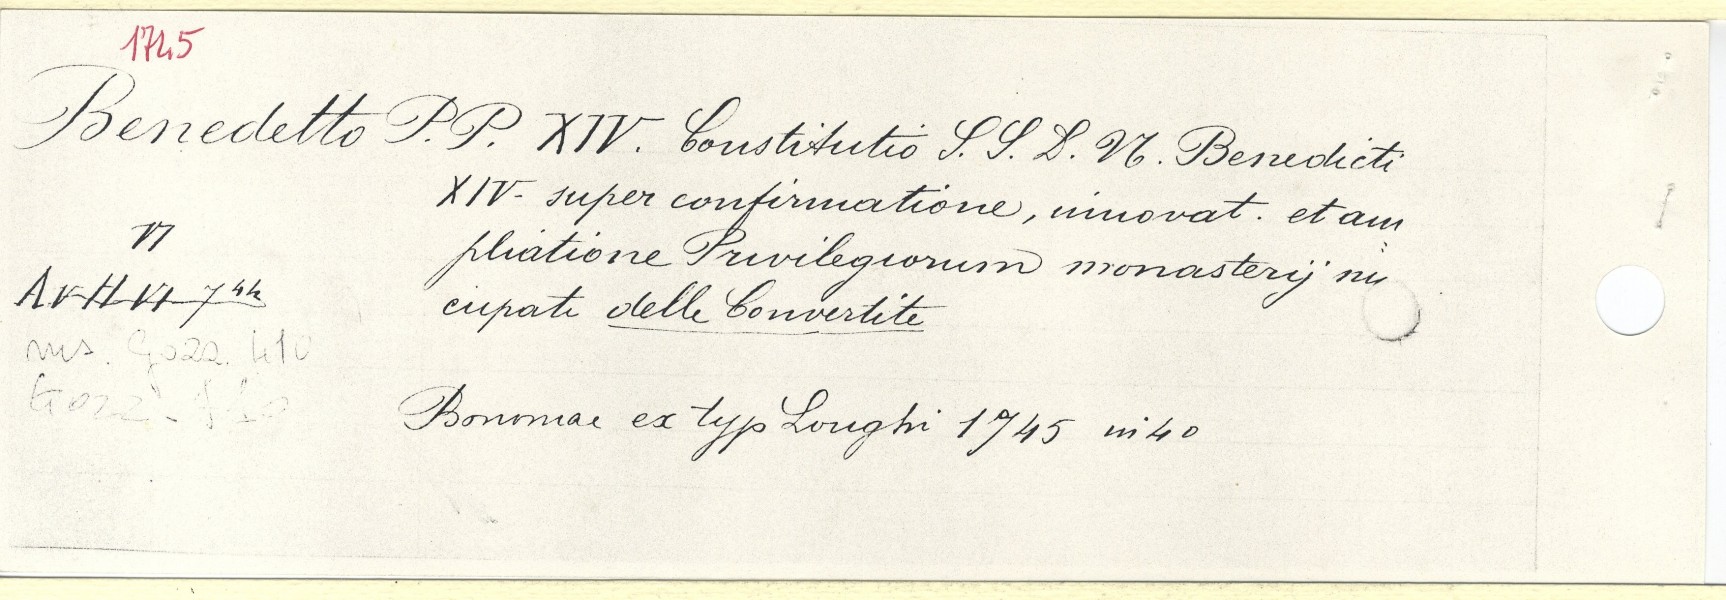 1745
Benedetto P.P. XIV. Constitutio S.S. D. N. Benedicti
XIV- super confirmatione, innovat. et am
pliatione Privilegiorum monasterij nu
cupati delle Convertite
VI
A V H VI 7
ms. Gozz. 410
Bononiae ex typ Longhi 1745 in 40